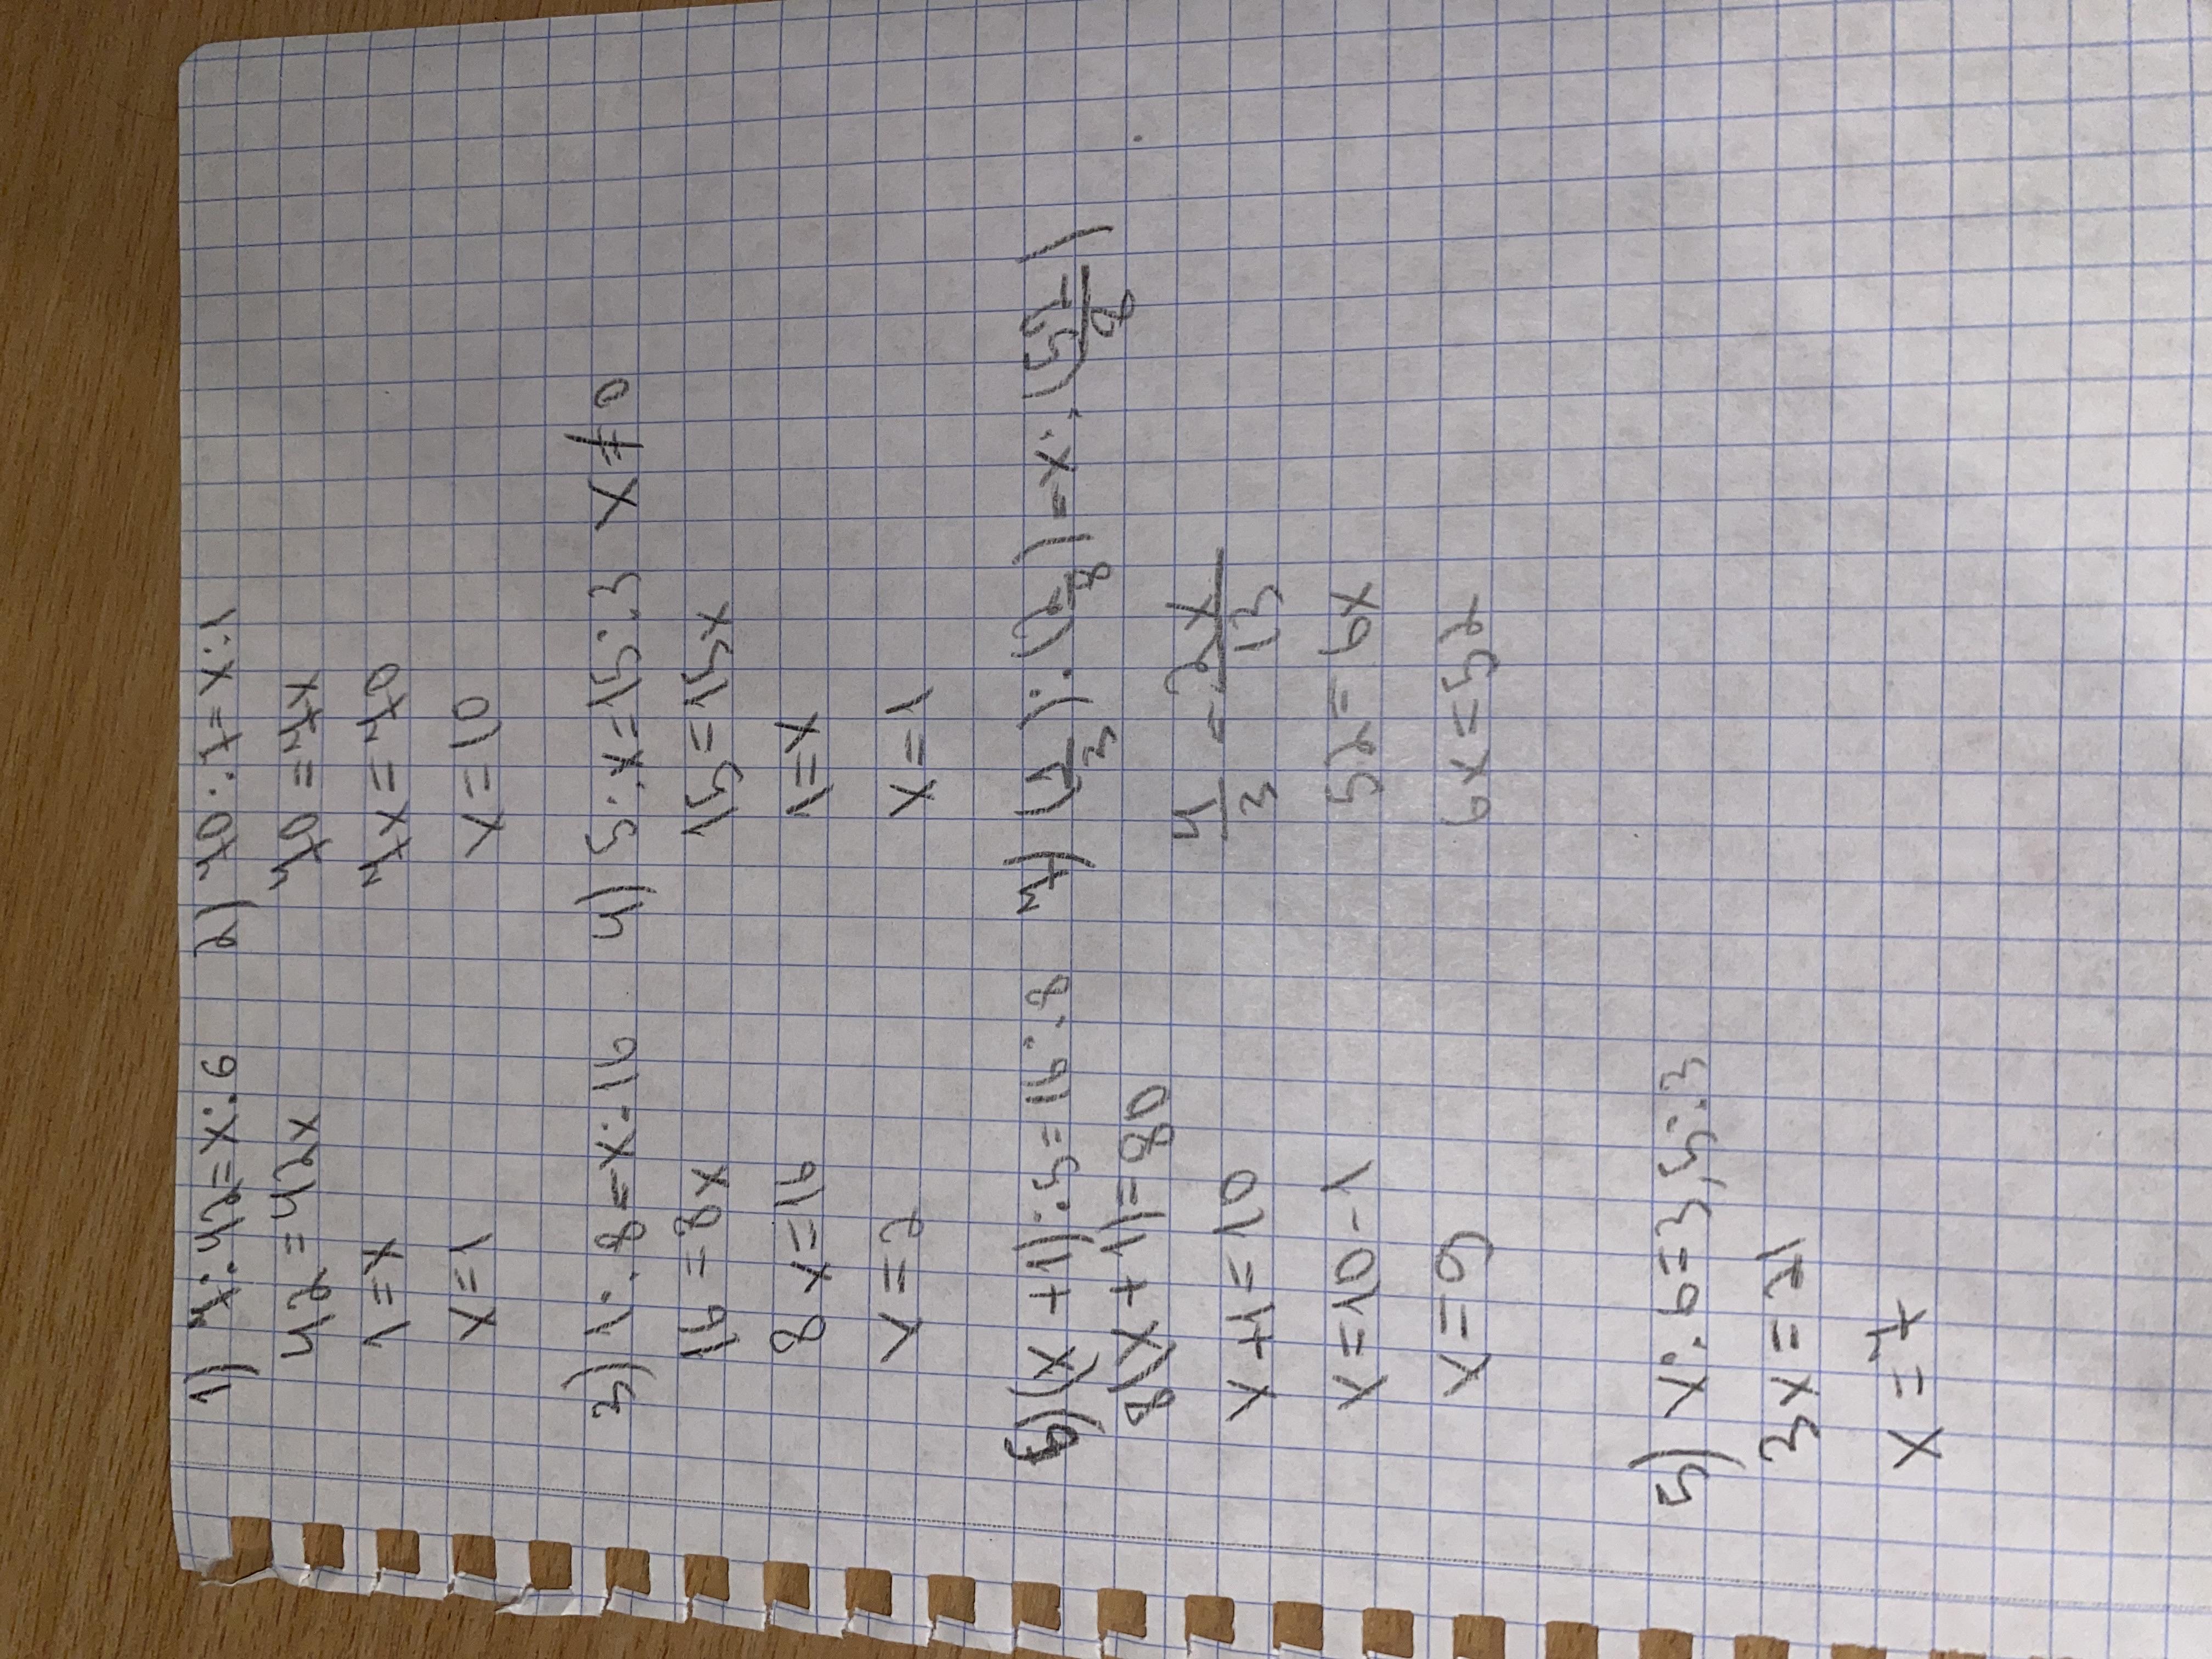 1) 7:42=x:6
42=42x
1=x
x=1
2) 70:7=x:1
70=7x
7x=70
x=10
3) 1:8=x:16
16=8x
8x=16
x=2
4) 5:x=15:3 x≠0
15=15x
1=x
x=1
6) (x+1):5=16:8
8(x+1)=80
x+1=10
x=10-1
x=9
7) =x:
4/3=2x/13
52=6x
6x=52
5) x:6=3,5:3
3x=21
x=7